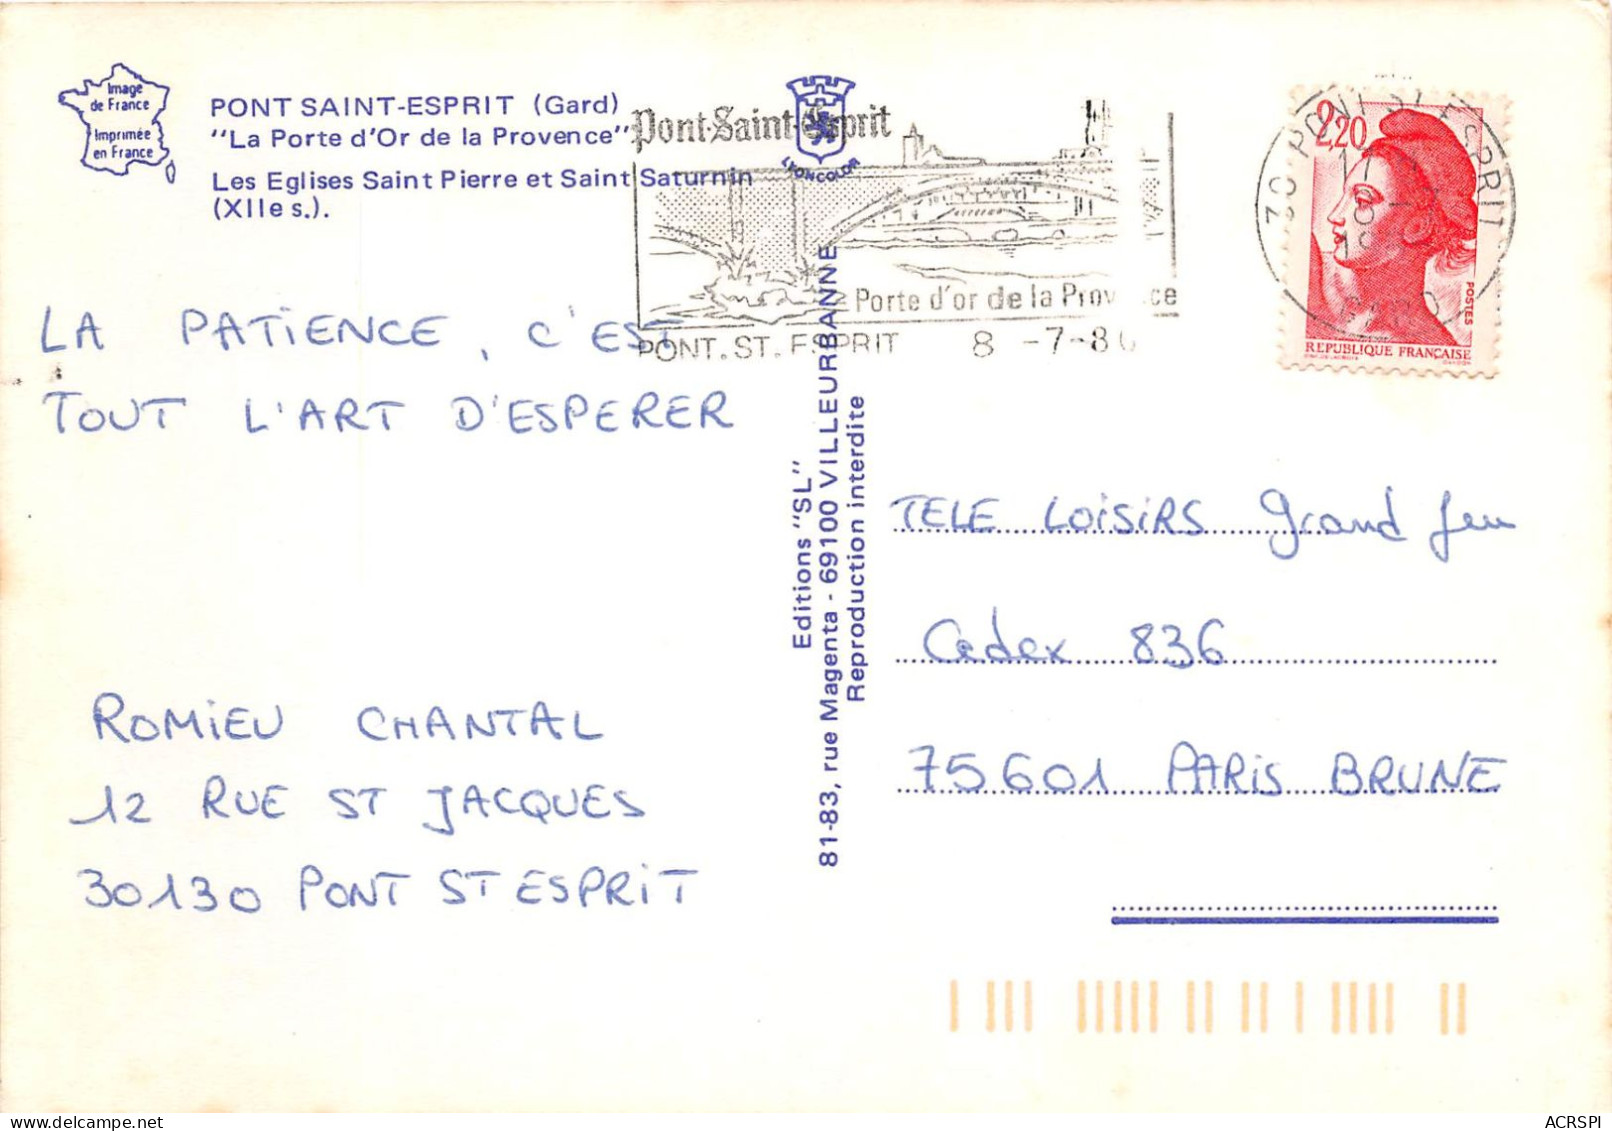 Image
de France
Imprimée
en France
PONT SAINT-ESPRIT (Gard)
"La Porte d'Or de la Provence"
Les Eglises Saint Pierre et Saint Saturnin
(XIIe s.).
LYONCOLOR
Pont-Saint-Esprit
Porte d'or de la Provence
PONT. ST. ESPRIT 8 -7-86
30 PONT ST ESPRIT
GARD
2,20
POSTES
REPUBLIQUE FRANÇAISE
LA PATIENCE, C'EST
TOUT L'ART D'ESPERER
ROMIEU CHANTAL
12 RUE ST JACQUES
30130 PONT ST ESPRIT
Editions "SL"
81-83, rue Magenta - 69100 VILLEURBANNE
Reproduction interdite
TELE LOISIRS Grand Jeu
Cedex 836
75601 PARIS BRUNE
ACRSPI